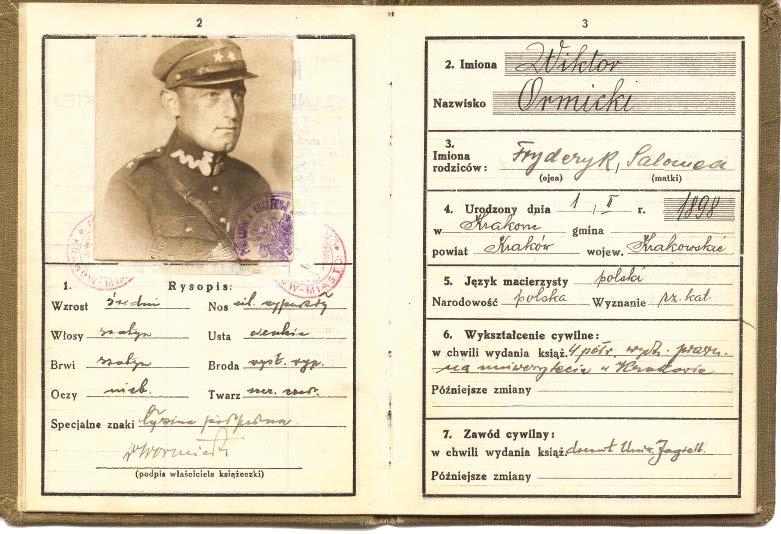 2
1. Rysopis:
Wzrost średni Nos
Włosy szatyn Usta
Brwi szatyn Broda
Oczy nieb. Twarz
Specjalne znaki łysina
(podpis właściciela książeczki)
3
2. Imiona Wiktor
Nazwisko Ormicki
3.
Imiona
rodziców: Fryderyk, Salomea
(ojca) (matki)
4. Urodzony dnia 1 II r. 1898
w Krakowie gmina
powiat Kraków wojew. Krakowskie
5. Język macierzysty polski
Narodowość polska Wyznanie rz. kat.
6. Wykształcenie cywilne:
w chwili wydania książ. 4 półr. wydz. praw.
na uniwersytecie w Krakowie
Późniejsze zmiany
7. Zawód cywilny:
w chwili wydania książ. docent Uniw. Jagiell.
Późniejsze zmiany